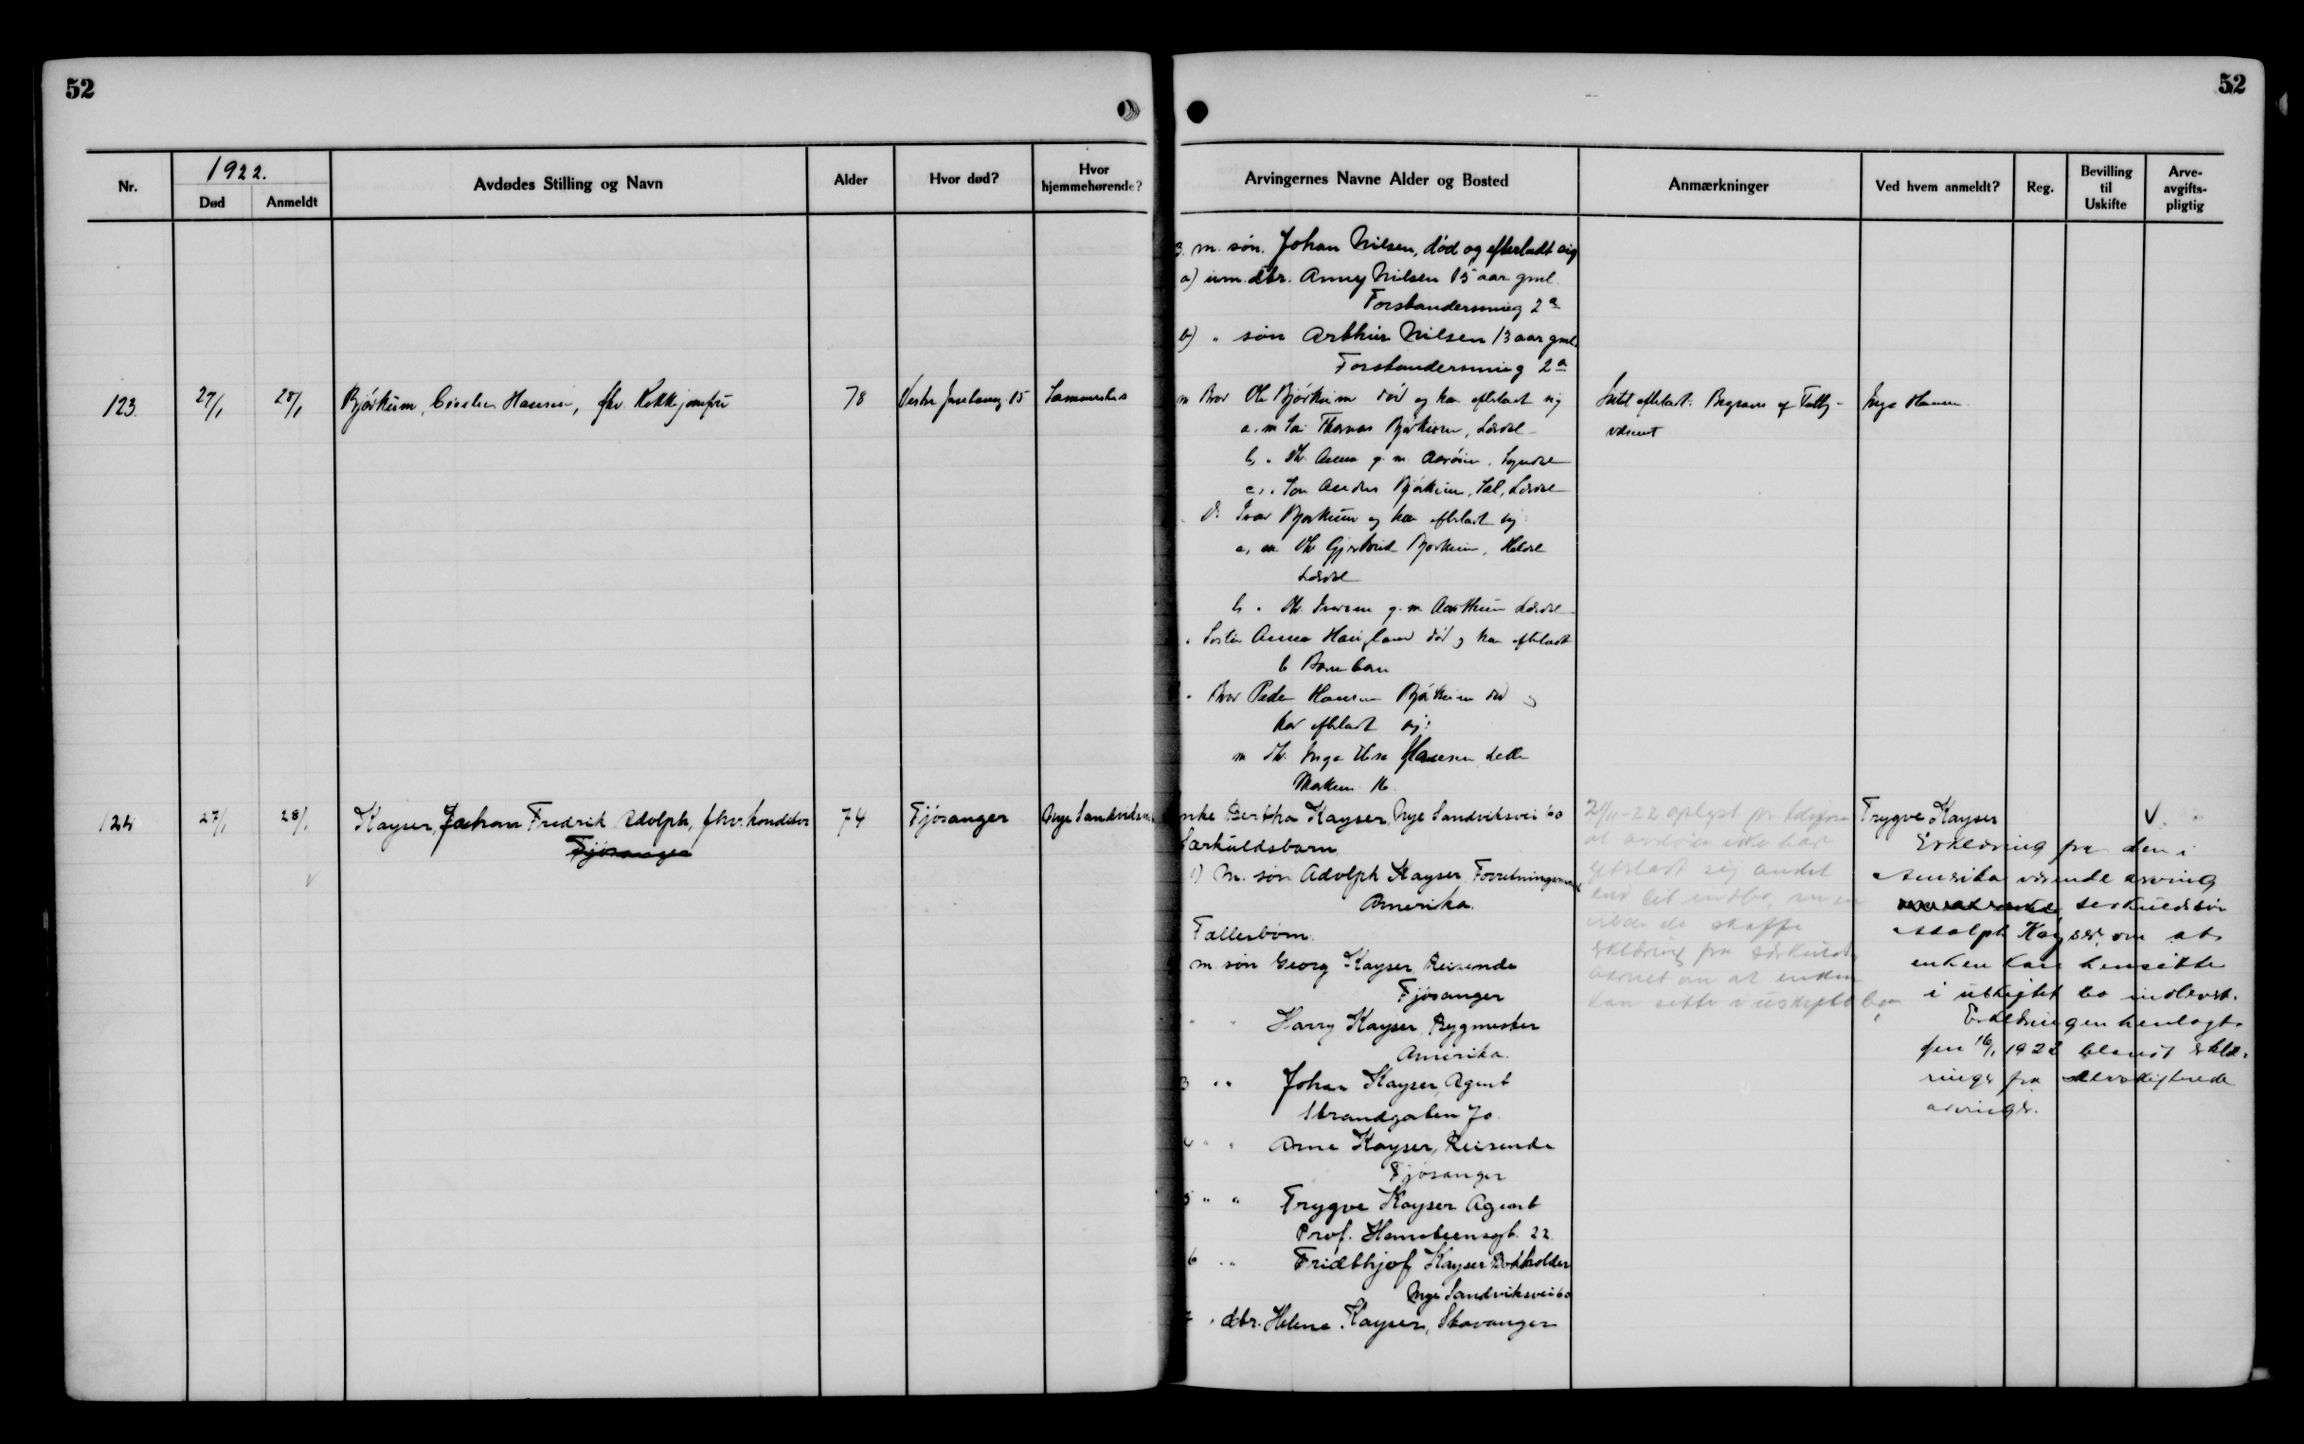 52
52
Nr.
1922.
Død
Anmeldt
Avdødes Stilling og Navn
Alder
Hvor død?
Hvor
hjemmehørende?
Arvingernes Navne Alder og Bosted
Anmærkninger
Ved hvem anmeldt?
Reg.
Bevilling
til
Uskifte
Arve-
avgifts-
pligtig
3. m. søn. Johan Nilsen, død og efterladt sig
a) um. dtr. Anny Nilsen 15 aar gml.
Forstandersmug 2a
b) " søn Arthur Nilsen 13 aar gml.
Forstandersmug 2a
123.
27/1
28/1
Bjørkum, Hansen, fhv. Kokkjomfru
78
15
m Bror Ole Bjørkum død og har efterladt sig
a. m. Søn Thomas Bjørkum, Lærdal
b, " Dtr. Anna g. m. , Sogndal
c, " Søn Anders Bjørkum, Lærdal
Ivar Bjørkum og har efterladt sig:
a, m. Dtr Bjørkum,
Lærdal
b " Dtr. g. m. Lærdal
" Søster Anna Haugland død og har efterladt
6 Barnebarn
" Bror Peder Hansen Bjørkum død og
har efterladt sig:
m Dtr. Inga Hansen Lille
Marken 16.
Intet efterladt. Begravet af Fattig-
væsenet
Inga Hansen
124
27/1
28/1
Kayser, Johan Fredrik Adolph, fhv. konditor
Fjøsanger
74
Fjøsanger
Nye Sandviksvei
Enke Bertha Kayser, Nye Sandviksvei 60
Særkuldsbarn
1) M. søn Adolph Kayser, Forretningsmand
Amerika.
Fællesbørn.
m. søn Georg Kayser, Reisende
Fjøsanger
" " Harry Kayser, Bygmester
Amerika.
3 " " Johan Kayser, Agent
Strandgaten 70.
4 " " Arne Kayser, Reisende
Fjøsanger
5 " " Trygve Kayser Agent
Prof. Hansteensgt. 22.
6 " " Fridthjof Kayser Bokholder
Nye Sandviksvei 60
7 " dtr. Helene Kayser, Stavanger
-22 oplyst pr telefon
at avdøde ikke har
efterladt sig andet
end lit indbo, men
vilde de skaffe
erklæring fra særkulds
barnet om at enken
kan sitte i uskiftet bo
Trygve Kayser
Erklæring fra den i
Amerika værende arving
særkuldsøn
Adolph Kayser, om at
enken kan hensitte
i uskiftet bo indlevert.
Erklæringen henlagt
den 16/1 1922 blandt erklæ-
ringer fra
arvinger.